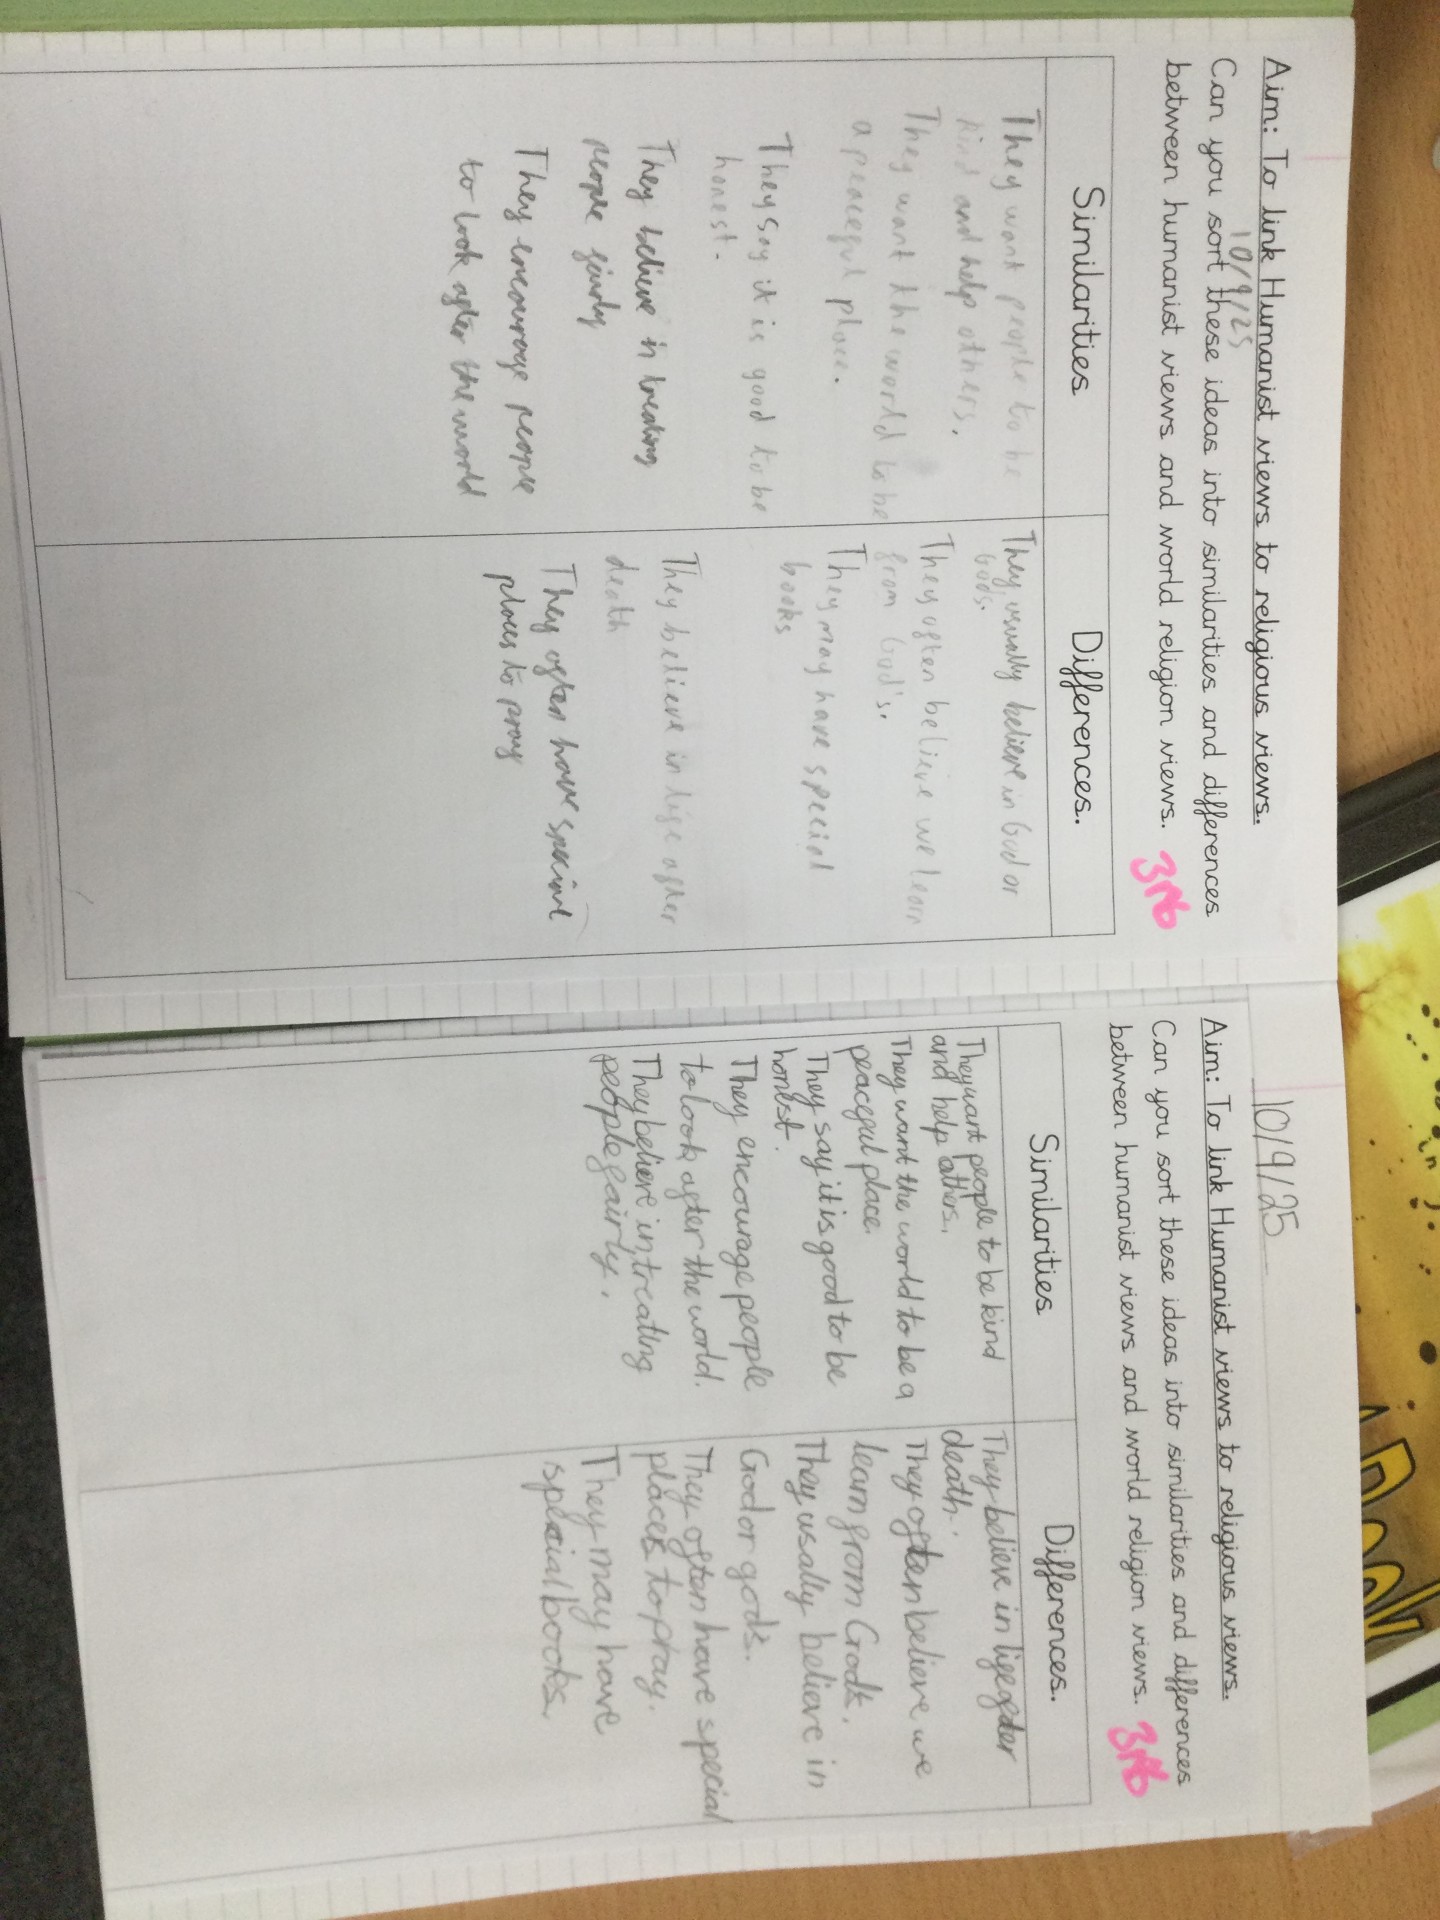 Aim: To link Humanist views to religious views.
10/9/25
Can you sort these ideas into similarities and differences
between humanist views and world religion views.
Similarities
They want people to be
kind and help others.
They want the world to be
a peaceful place.
They say it is good to be
honest.
They believe in treating
people fairly
They encourage people
to look after the world
Differences.
They usually believe in God or
Gods.
They often believe we learn
from God's.
They may have special
books
They believe in life after
death
They often have special
places to pray
10/9/25
Aim: To link Humanist views to religious views.
Can you sort these ideas into similarities and differences
between humanist views and world religion views.
Similarities
They want people to be kind
and help others.
They want the world to be a
peaceful place.
They say it is good to be
honest.
They encourage people
to look after the world.
They believe in treating
people fairly.
Differences.
They believe in life after
death.
They often believe we
learn from Gods.
They usally believe in
God or gods.
They often have special
places to pray.
They may have
special books.